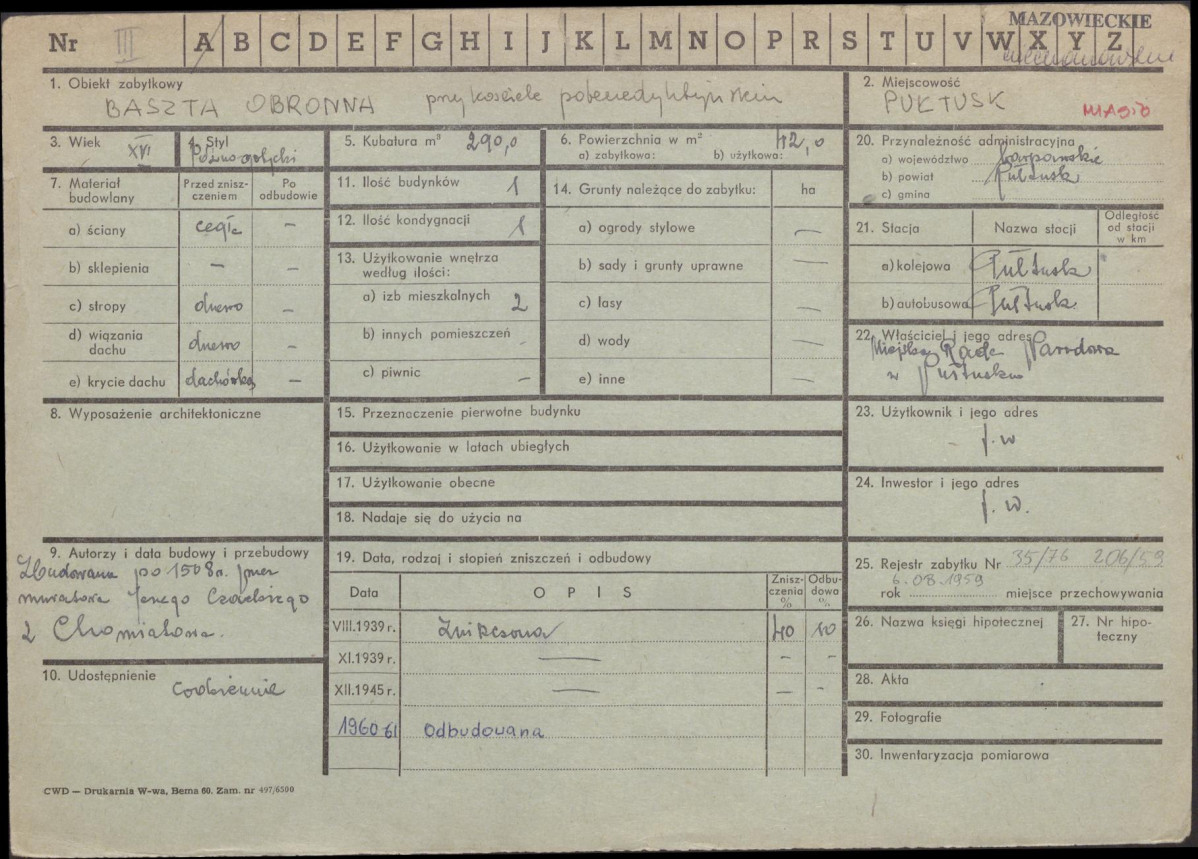 MAZOWIECKIE
Nr III A B C D E F G H I J K L M N O P R S T U V W X Y Z
1. Obiekt zabytkowy
BASZTA OBRONNA przy kościele pobenedyktyńskim
2. Miejscowość
PUŁTUSK
MIASTO
3. Wiek
XVI
4. Styl
Późnogotycki
5. Kubatura m³ 290,0
6. Powierzchnia w m²
a) zabytkowa: b) użytkowa: 42,0
7. Materiał budowlany
Przed zniszczeniem
Po odbudowie
a) ściany cegła –
b) sklepienia – –
c) stropy drewno –
d) wiązania dachu drewno –
e) krycie dachu dachówka –
8. Wyposażenie architektoniczne
9. Autorzy i data budowy i przebudowy
Zbudowana po 1508 r. przez
muratora
z
10. Udostępnienie
codziennie
11. Ilość budynków 1
12. Ilość kondygnacji 1
13. Użytkowanie wnętrza
według ilości:
a) izb mieszkalnych 2
b) innych pomieszczeń
c) piwnic –
14. Grunty należące do zabytku: ha
a) ogrody stylowe –
b) sady i grunty uprawne –
c) lasy –
d) wody –
e) inne –
15. Przeznaczenie pierwotne budynku
16. Użytkowanie w latach ubiegłych
17. Użytkowanie obecne
18. Nadaje się do użycia na
19. Data, rodzaj i stopień zniszczeń i odbudowy
Data
OPIS
Zniszczenia %
Odbudowa %
VIII.1939 r. 40
XI.1939 r. – – –
XII.1945 r. – – –
1960-61 Odbudowana
20. Przynależność administracyjna
a) województwo warszawskie
b) powiat Pułtusk
c) gmina
21. Stacja
Nazwa stacji
Odległość od stacji w km
a) kolejowa Pułtusk
b) autobusowa Pułtusk
22. Właściciel i jego adres
Miejska Rada Narodowa
w Pułtusku
23. Użytkownik i jego adres
– j. w
24. Inwestor i jego adres
j. w.
25. Rejestr zabytku Nr 35/76 206/59
6.08.1959
rok miejsce przechowywania
26. Nazwa księgi hipotecznej
27. Nr hipoteczny
28. Akta
29. Fotografie
30. Inwentaryzacja pomiarowa
CWD — Drukarnia W-wa, Bema 60. Zam. nr 497/6500